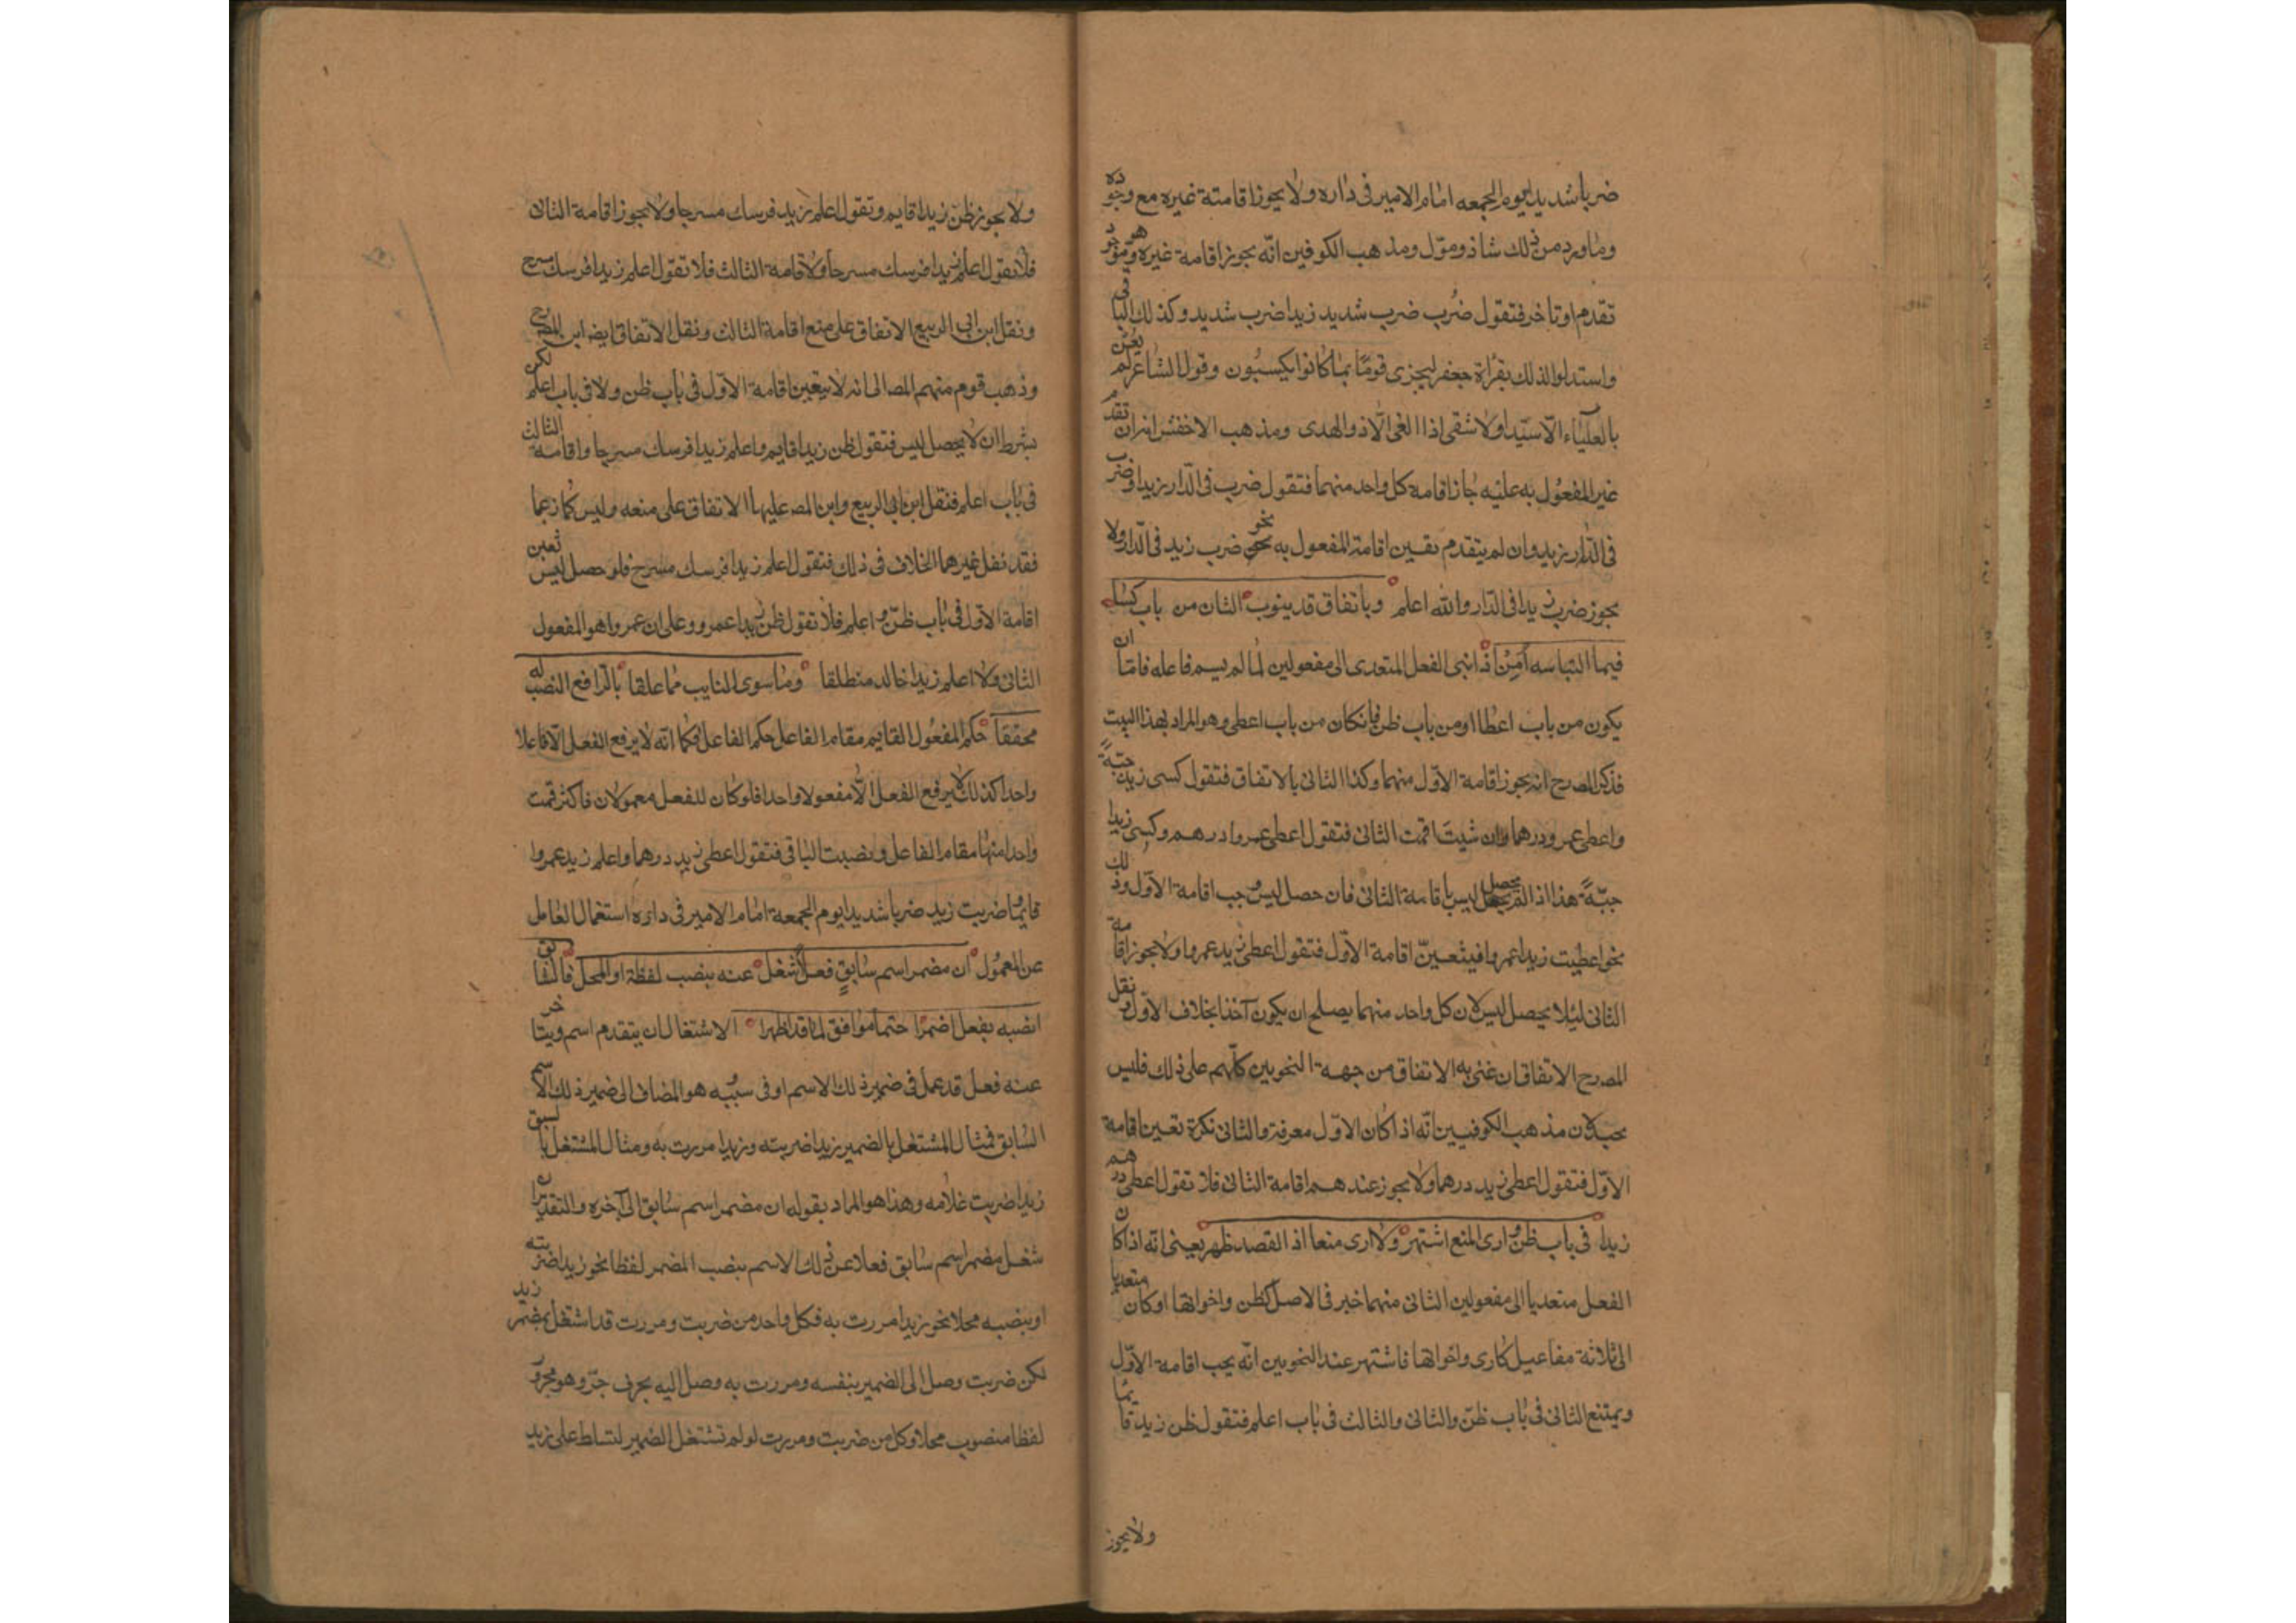 ضربا شديدا يوم الجمعه امام الامير فى داره ولا يجوز اقامتة غيره مع وجوده
وما ورد من ذلك شاذ وموّل ومذهب الكوفين انّه يجوز اقامة غيره وهو موجود
تقدم او تاخر فتقول ضُرب ضرب شديد زيدا ضرب شديد وكذلك الباقى
واستدلوا لذلك بقرأة جعفر ليجزى قومًا بما كانوا يكسبُون وقول الشاعر لم يُعْنَ
بالعليَاء الّا سيّدا ولا شفى اذا الغى الّا ذو الهدى ومذهب الاخفش انه ان تقدم
غير المفعُول به عليه جاز اقامة كل واحد منهما فتقول ضرب فى الدّار زيدا وضرب
فى الدّار زيد وان لم يتقدم تعين اقامة المفعول به نحو ضرب زيد فى الدّار ولا
يجوز ضرب زيدا فى الدّار والله اعلم وباتفاق قد ينوب الثان من باب كسا
فيما التباسه اُمِنْ اذا بنى الفعل المتعدى الى مفعولين لما لم يسم فاعله فامّا ان
يكون من باب اعطا او من باب ظن فانكان من باب اعطى وهو المراد بهذا البيت
فذكر المصرح انه يجوز اقامة الاوّل منهما وكذا الثانى بالاتفاق فتقول كسى زيد جبّةً
واعطى عمرو درهما وان شيتَ اقمت الثانى فتقول اعطى عمروا درهم وكسى زيدا
جبّةً هذا اذا لم يحصل لبس باقامة الثانى فان حصل لبس وجب اقامة الاوّل وذلك
نحو اعطيت زيدا عمروا فيتعيّن اقامة الاوّل فتقول اعطى زيد عمروا ولا يجوز اقامة
الثانى ليئلا يحصل لبس لان كل واحد منهما يصلح ان يكون آخذا بخلاف الاوّل ونقل
المصرح الاتفاق ان عنى به الاتفاق من جهة النحويين كلّهم على ذلك فليس
بجيد لان مذهب الكوفيين انّه اذا كان الاوّل معرفة والثانى نكرة تعين اقامة
الاوّل فتقول اعطى زيد درهما ولا يجوز عندهم اقامة الثانى فلا تقول اعطى درهم
زيدا فى باب ظن وارى المنع اشتهر ولا ارى منعا اذا القصد ظهر يعنى انّه اذا كان
الفعل متعديا الى مفعولين الثانى منهما خبر فى الاصل كظن واخواتها او كان متعديا
الى ثلاثة مفاعيل كارى واخواتها فاشتهر عند النحويين انّه يجب اقامة الاوّل
ويمتنع الثانى فى باب ظنّ والثانى والثالث فى باب اعلم فتقول ظن زيد قايما
ولا يجوز
ولا يجوز ظن زيدا قايم وتقول اعلم زيد فرسك مسرجا ولا يجوز اقامة الثانى
فلا تقول اعلم زيدا فرسك مسرجا ولا اقامة الثالث فلا تقول اعلم زيدا فرسك مسرج
ونقل ابن ابى الربيع الاتفاق على منع اقامة الثالث ونقل الاتفاق ايضا ابن المصرح
وذهب قوم منهم المصـ الى انه لا يتعين اقامة الاوّل فى باب ظن ولا فى باب اعلم لكن
بشرط ان لا يحصل لبس فتقول ظن زيدا قايم واعلم زيدا فرسك مسرجا واقامة الثالث
فى باب اعلم فنقل ابن ابى الربيع وابن المصـ عليهما الاتفاق على منعه وليس كما زعما
فقد نقل غيرهما الخلاف فى ذلك فتقول اعلم زيدا فرسك مسرج فلو حصل لبس تعين
اقامة الاوّل فى باب ظنّ واعلم فلا تقول ظن زيدا عمرو وعلى ان عمروا هو المفعول
الثانى ولا اعلم زيدا خالد منطلقا وما سوى النايب مما علقا بالرّافع النصب له
محققا حكم المفعُول القايم مقام الفاعل حكم الفاعل فكما انّه لا يرفع الفعل الّا فاعلا
واحدا كذلك لا يرفع الفعل الّا مفعولا واحدا فلو كان للفعل معمولان فاكثر قمت
واحدا منها مقام الفاعل ونصبت الباقى فتقول اعطى زيد درهما واعلم زيد عمروا
قايما وضربت زيد ضربا شديدا يوم الجمعة امام الامير فى داره اشتغال العامل
عن المعمُول ان مضمر اسم سابقٍ فعلا شغل عنه بنصب لفظه او المحل فالسابق
انصبه بفعل اضمرا حتما موافق لما قد اظهرا الاشتغال ان يتقدم اسم ويتاخر
عنه فعل قد عمل فى ضمير ذلك الاسم او فى سببه هو المضاف الى ضمير ذلك الاسم
السّابق فمثال المشتغل بالضمير زيدا ضربته وزيدا مررت به ومثال المشتغل بالسبق
زيدا ضربت غلامه وهذا هو المراد بقوله ان مضمر اسم سابق الى آخره والتقدير ان
شغل مضمر اسم سابق فعلا عن ذلك الاسم بنصب المضمر لفظا نحو زيدا ضربته
او بنصبه محلا نحو زيدا مررت به فكل واحد من ضربت ومررت قد اشتغل بضمير زيد
لكن ضربت وصل الى الضمير بنفسه ومررت به وصل اليه بحرف جرّ وهو مجرور
لفظا منصوب محلا وكل من ضربت ومررت لو لم تشتغل الضمير لتسلط على زيد